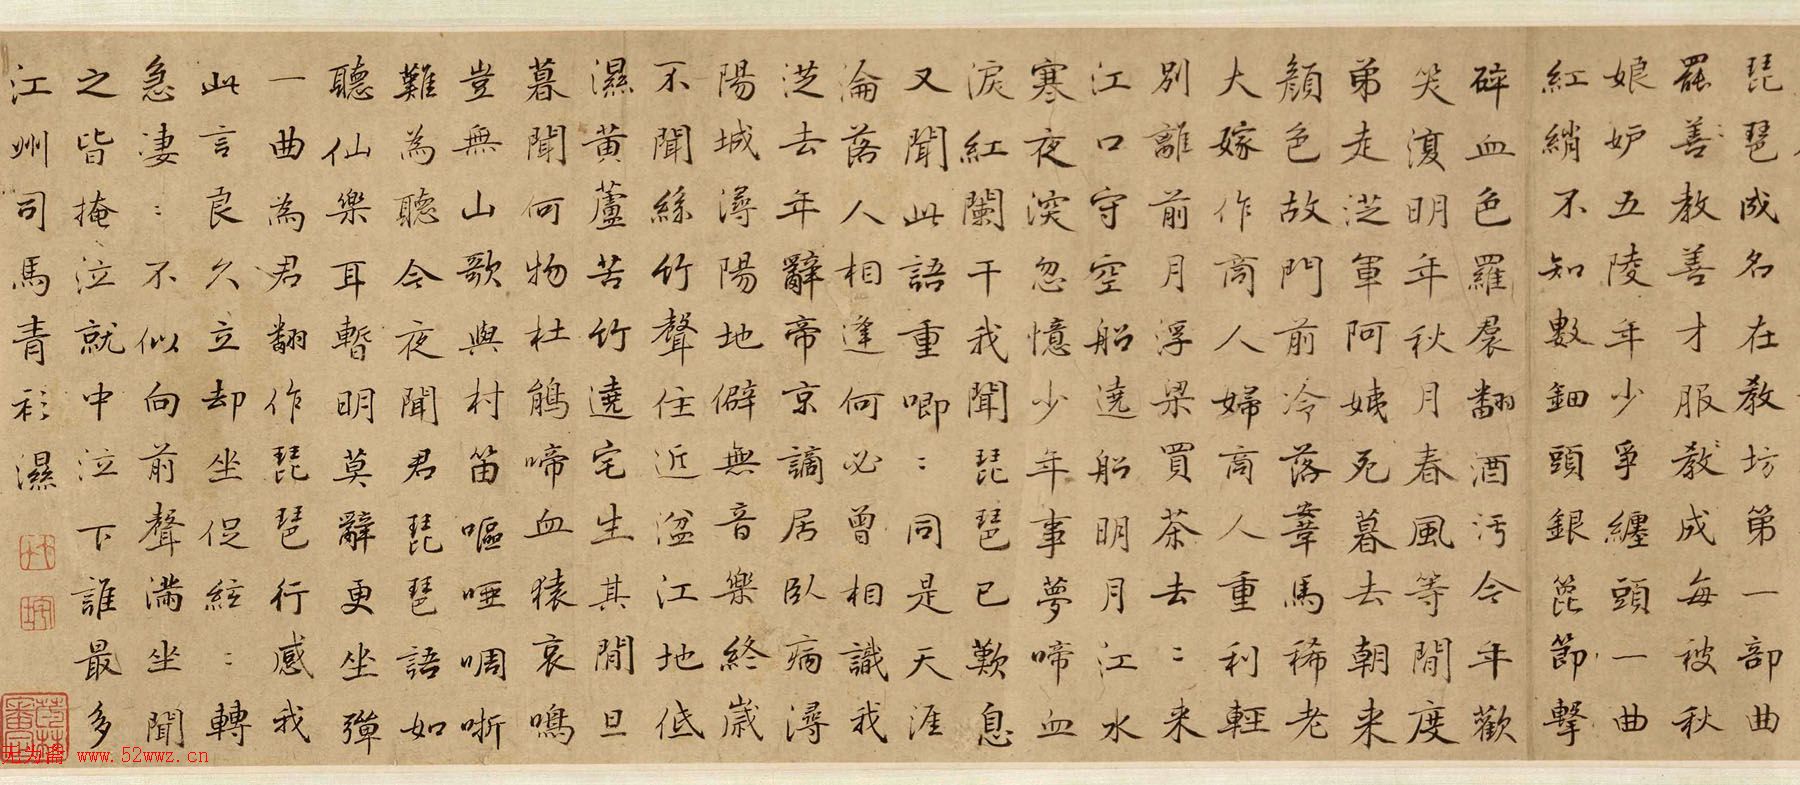 琵琶成名在教坊第一部曲
罷善教善才服教成每被秋
娘妒五陵年少爭纏頭一曲
紅綃不知數鈿頭銀篦節擊
碎血色羅裠翻酒污今年歡
笑復明年秋月春風等閒度
弟走從軍阿姨死暮去朝来
顏色故門前冷落鞌馬稀老
大嫁作商人婦商人重利輕
別離前月浮梁買茶去〻来
江口守空船遶船明月江水
寒夜深忽憶少年事夢啼血
淚紅闌干我聞琵琶已歎息
又聞此語重唧〻同是天涯
淪落人相逢何必曾相識我
從去年辭帝京謫居臥病潯
陽城潯陽地僻無音樂終歲
不聞絲竹聲住近湓江地低
濕黃蘆苦竹遶宅生其間旦
暮聞何物杜鵑啼血猿哀鳴
豈無山歌與村笛嘔啞啁哳
難為聽今夜聞君琵琶語如
聽仙樂耳暫明莫辭更坐彈
一曲為君翻作琵琶行感我
此言良久立却坐促絃〻轉
急凄〻不似向前聲滿坐聞
之皆掩泣就中泣下誰最多
江州司馬青衫濕
www.52wwz.cn